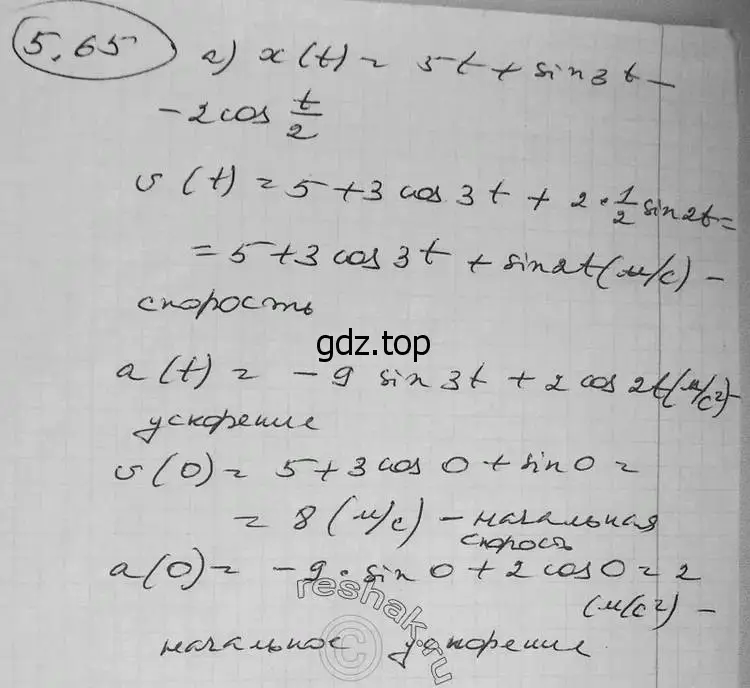 5.65 а) x(t) = 5t + sin3t –
– 2cos t/2
v(t) = 5 + 3 cos 3t + 2 · 1/2 sin2t =
= 5 + 3 cos 3t + sin2t (м/с) –
скорость
gdz.top
a(t) = – 9 sin 3t + 2 cos 2t (м/с²) –
ускорение
v(0) = 5 + 3 cos 0 + sin 0 =
= 8 (м/с) – начальная
скорость
a(0) = – 9 · sin 0 + 2 cos 0 = 2
(м/с²) –
reshak.ru
©
начальное ускорение